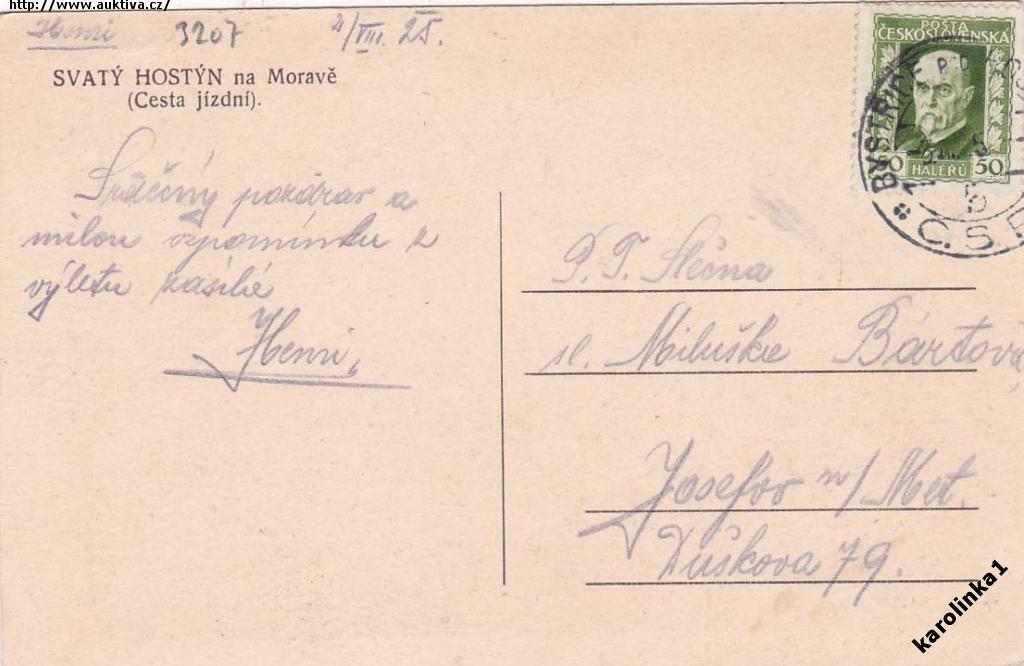 http://www.auktiva.cz/
Henri 3207 2/VIII. 25.
SVATÝ HOSTÝN na Moravě
(Cesta jízdní).
Srdečný pozdrav a
milou vzpomínku z
výletu zasílá
Henri
POŠTA
ČESKOSLOVENSKA
50 HALÉŘŮ 50
BYSTŘICE P. HOST
Č.S.R.
P. T. Slečna
sl. Miluška Bártová
Josefov n/Met.
Duškova 79.
karolinka1